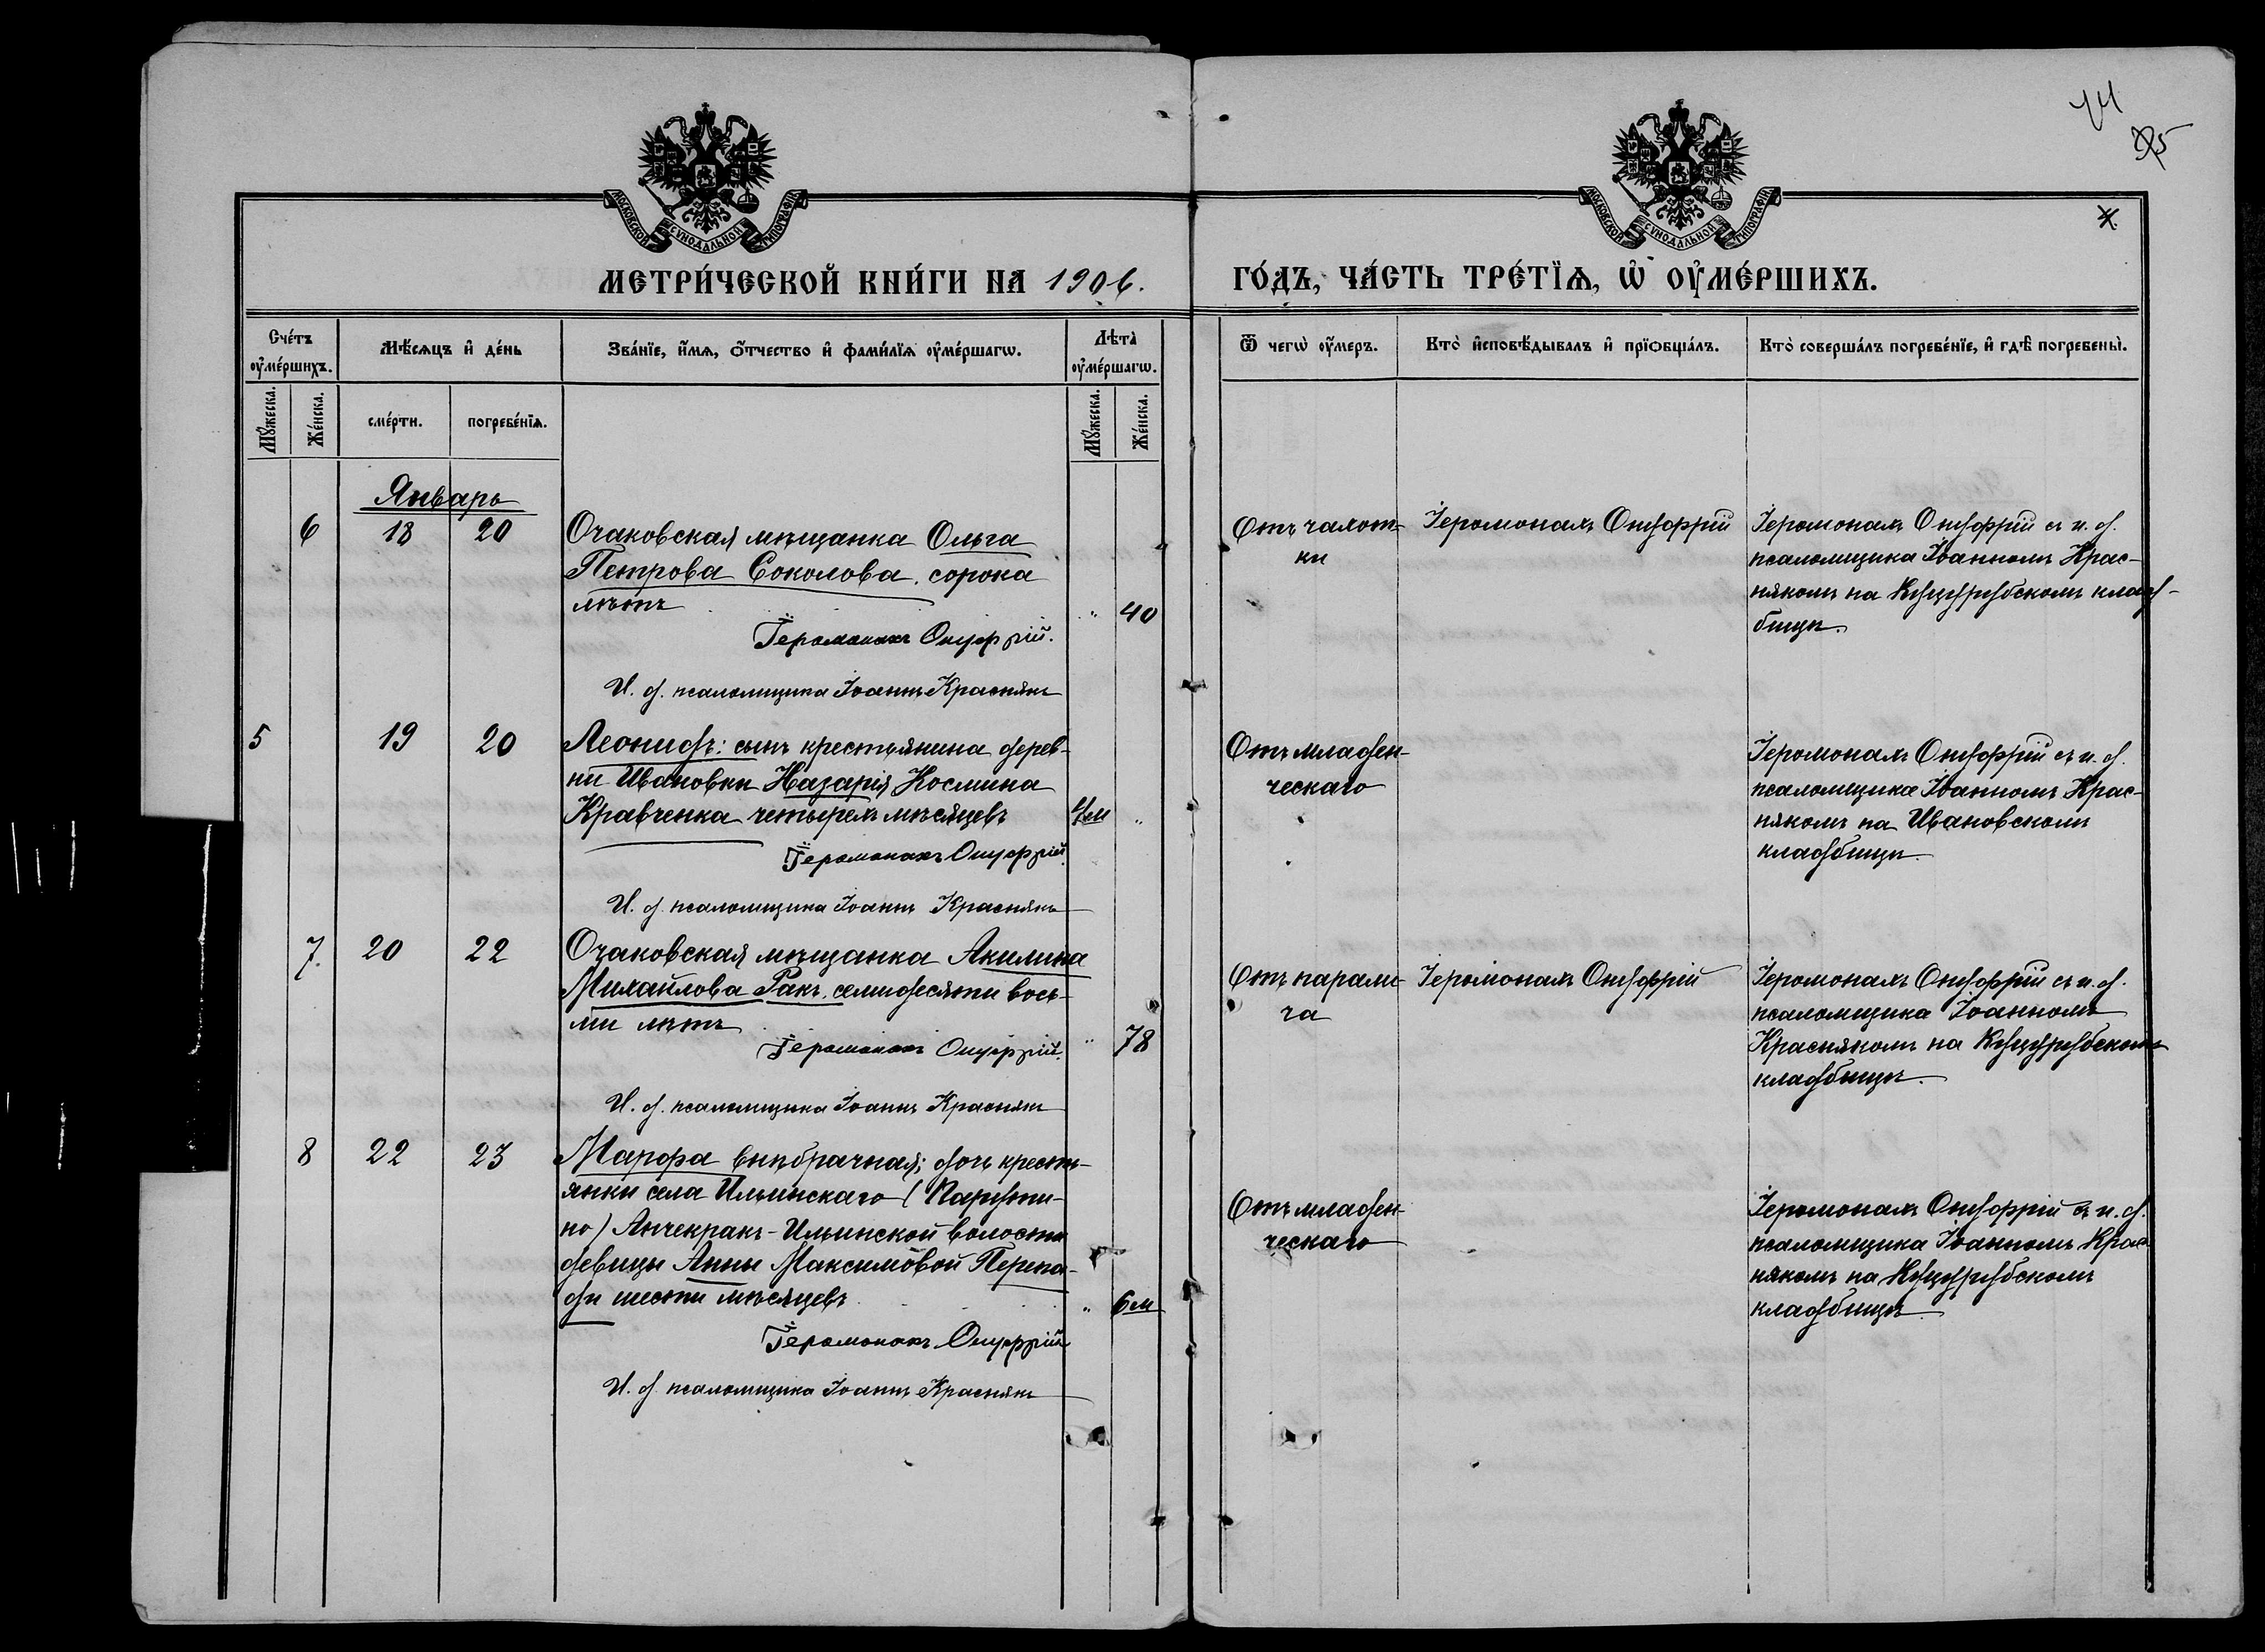 74
МОСКОВСКОЙ СѴНОДАЛЬНОЙ ТИПОГРАФІИ
МОСКОВСКОЙ СѴНОДАЛЬНОЙ ТИПОГРАФІИ
МЕТРИ́ЧЕСКОЙ КНИ́ГИ НА 1906.
ГО́ДЪ, ЧА́СТЬ ТРЕ́ТЇѦ, Ѡ҆ ОУ҆МЕ́РШИХЪ.
Сче́тъ оу҆ме́ршихъ.
Мѣ́сѧцъ и҆ де́нь
Зва́нїе, и҆́мѧ, ѻ҆́тчество и҆ фами́лїѧ оу҆ме́ршагѡ.
Лѣ́та оу҆ме́ршагѡ.
Ѿ чегѡ̀ оу҆́меръ.
Кто̀ и҆сповѣ́дывалъ и҆ прїѡбща́лъ.
Кто̀ соверша́лъ погребе́нїе, и҆ гдѣ̀ погребены̀.
Мꙋ́жеска.
Же́нска.
сме́рти.
погребе́нїѧ.
Мꙋ́жеска.
Же́нска.
Январь
6 18 20 Очаковская мѣщанка Ольга
Петрова Соколова, сорока
лѣтъ " 40
Іеромонахъ Онуфрій.
И. д. псаломщика Іоаннъ Краснякъ
Отъ чахот-
ки
Іеромонахъ Онуфрій
Іеромонахъ Онуфрій съ и. д.
псаломщика Іоанномъ Крас-
някомъ на Куцурубскомъ клад-
бищѣ.
5 19 20 Леонидъ: сынъ крестьянина дерев-
ни Ивановки Назарія Космина
Кравченка четырехъ мѣсяцевъ 4 м "
Іеромонахъ Онуфрій.
И. д. псаломщика Іоаннъ Краснякъ
Отъ младен-
ческаго
Іеромонахъ Онуфрій съ и. д.
псаломщика Іоанномъ Крас-
някомъ на Ивановскомъ
кладбищѣ.
7. 20 22 Очаковская мѣщанка Акилина
Михайлова Ракъ, семидесяти вось-
ми лѣтъ " 78
Іеромонахъ Онуфрій.
И. д. псаломщика Іоаннъ Краснякъ
Отъ парали-
ча
Іеромонахъ Онуфрій
Іеромонахъ Онуфрій съ и. д.
псаломщика Іоанномъ
Краснякомъ на Куцурубскомъ
кладбищѣ.
8 22 23 Марфа внѣбрачная; дочь кресть-
янки села Ильинскаго (Парути-
но) Анчекракъ-Ильинской волости
девицы Анны Максимовой Перепа-
ди шести мѣсяцевъ " 6 м
Іеромонахъ Онуфрій
И. д. псаломщика Іоаннъ Краснякъ
Отъ младен-
ческаго
Іеромонахъ Онуфрій съ и. д.
псаломщика Іоанномъ Крас-
някомъ на Куцурубскомъ
кладбищѣ.